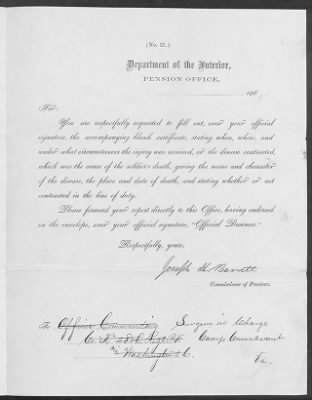 (No. 21.)
Department of the Interior,
PENSION OFFICE,
186
Sir:
You are respectfully requested to fill out, over your official
signature, the accompanying blank certificate, stating when, where, and
under what circumstances the injury was received, or the disease contracted,
which was the cause of the soldier's death, giving the name and character
of the disease, the place and date of death, and stating whether or not
contracted in the line of duty.
Please forward your report directly to this Office, having endorsed
on the envelope, over your official signature, "Official Business."
Respectfully, yours,
Joseph H. Barrett
Commissioner of Pensions.
To Officer Commanding Surgeon in Charge
Camp Convalescent
Washington Va.